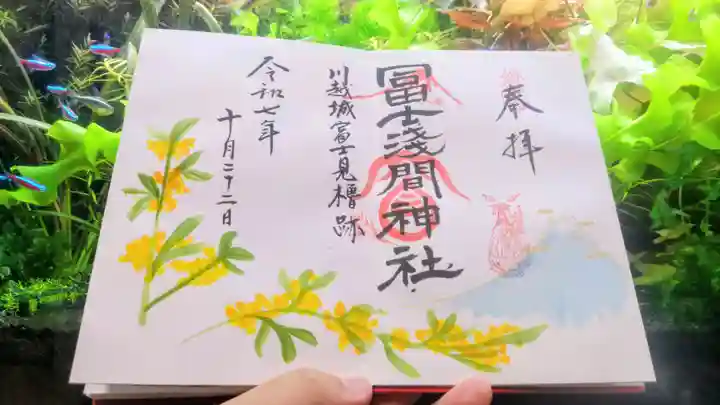 奉拝
冨士淺間神社
川越城富士見櫓跡
令和七年
十月二十二日